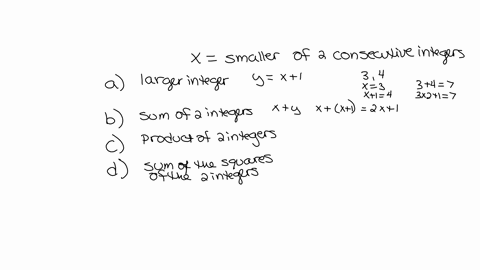 x = smaller of 2 consecutive integers
a) larger integer y = x+1
3, 4
x=3
x+1=4
3+4=7
3x2+1=7
b) sum of 2 integers x+y x+(x+1) = 2x+1
c) product of 2 integers
d) sum of the squares
of the 2 integers